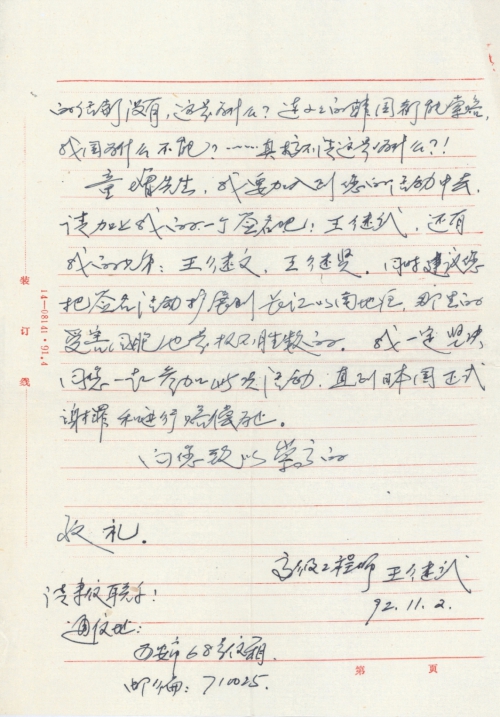 的信都没有，这是为什么？连女工的韩国都能索赔，
我国为什么不能？……真搞不清这是为什么？！
童增先生，我要加入到您的活动中去，
请加上我的一个签名吧：王继武，还有
我的兄弟：王继文、王继贤。同时建议您
把签名活动扩展到长江以南地区，那里的
受害同胞也是极不胜数的。我一定坚决
同您一起参加此次活动，直到日本国正式
谢罪和进行赔偿为止。
向您致以崇高的
敬礼。
高级工程师 王继武
92.11.2.
请来信联系！
通信地址：
西安市68号信箱
邮编：710025.
装 订 线
14—08141·91.4
第 頁